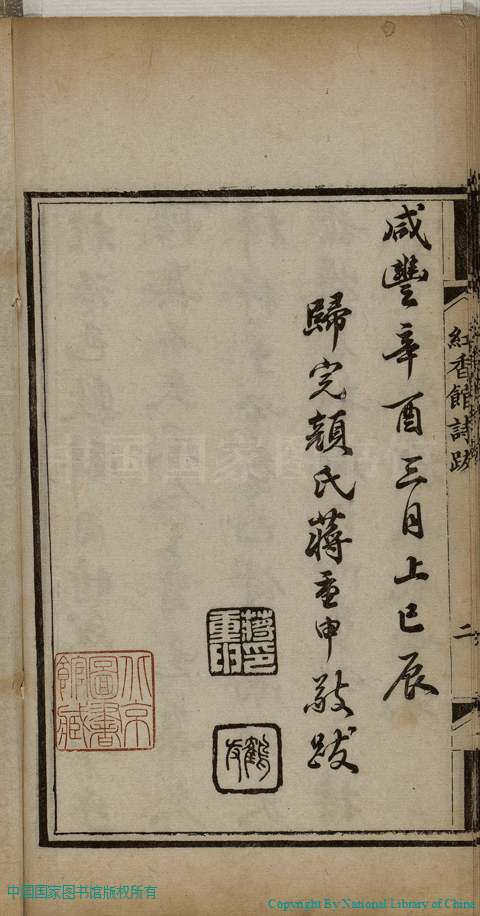 咸豐辛酉三月上巳辰
歸完顏氏蔣重申敬跋
紅香館詩跋
二
蔣重申印
鶴友
北京圖書館藏
中国国家图书馆版权所有
Copyright By National Library of China